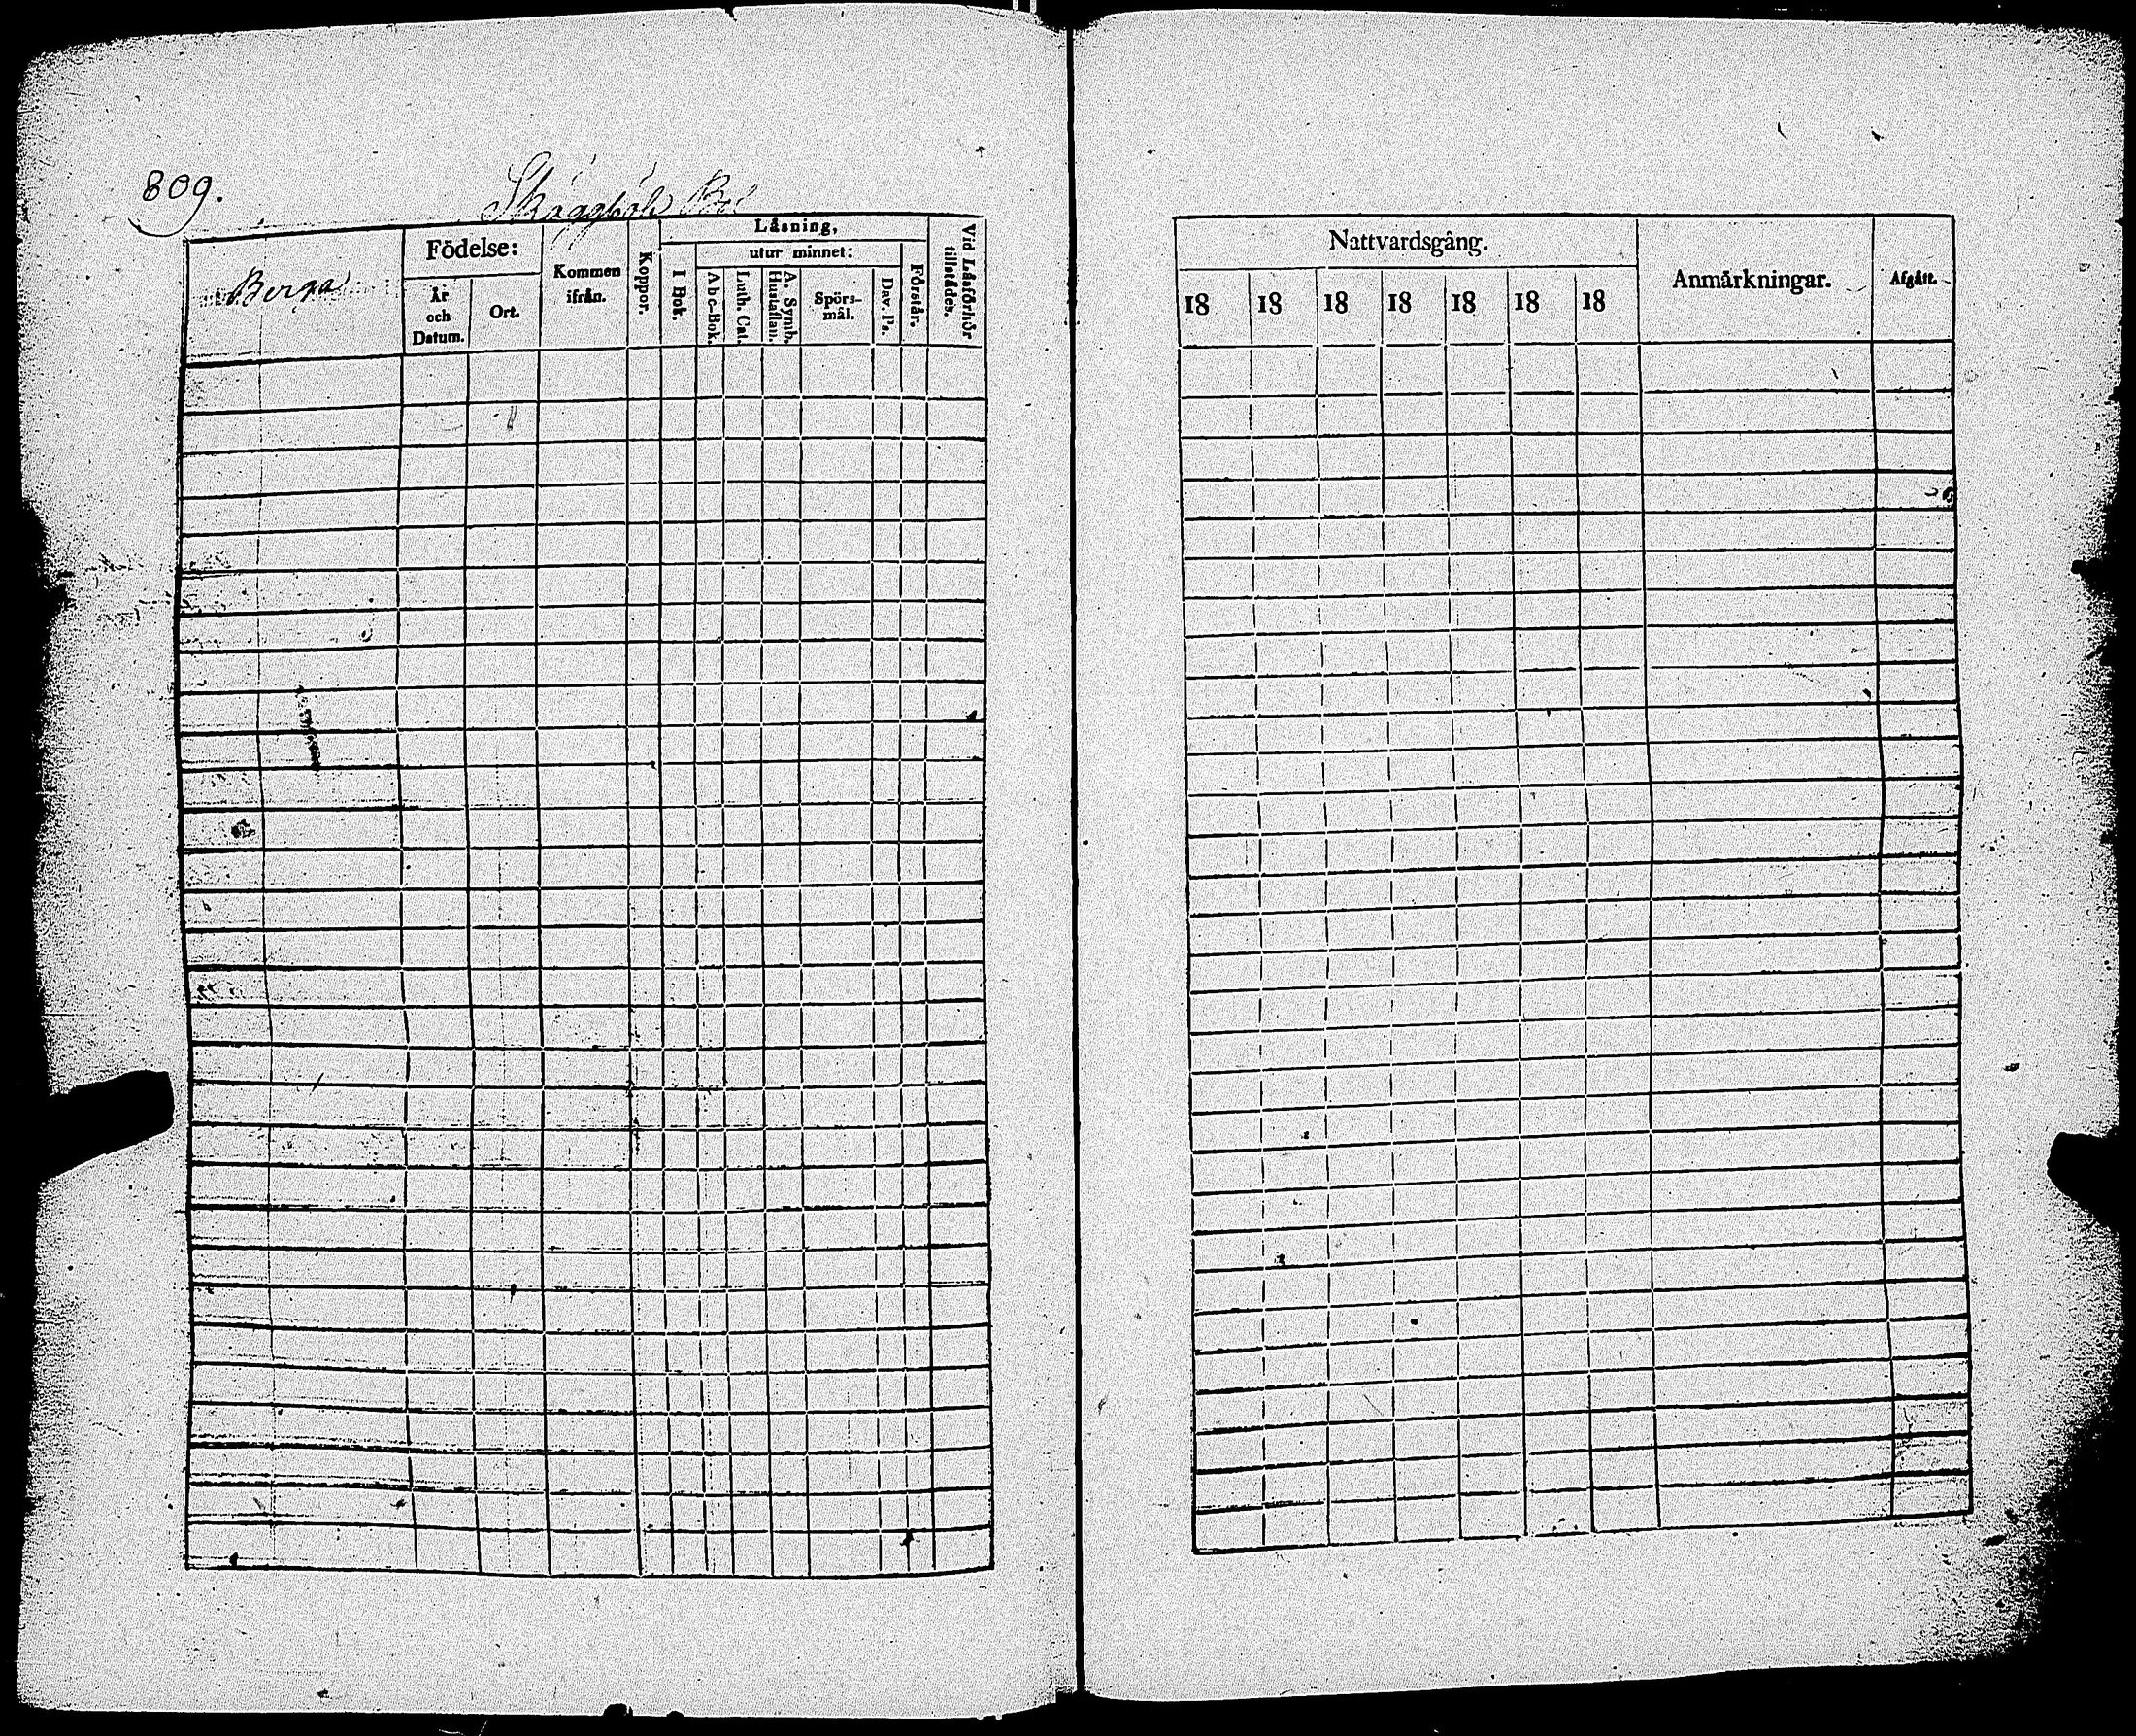 809.
Skäggböle
Berga
Födelse:
År
och
Datum.
Ort.
Kommen
ifrån.
Koppor.
Läsning,
I Bok.
utur minnet:
Abc-Bok.
Luth. Cat.
A. Symb.
Hustaflan.
Spörs-
mål.
Dav. Ps.
Förstår.
Vid Läsförhör
tillstädes.
Nattvardsgång.
18 18 18 18 18 18 18
Anmärkningar.
Afgått.